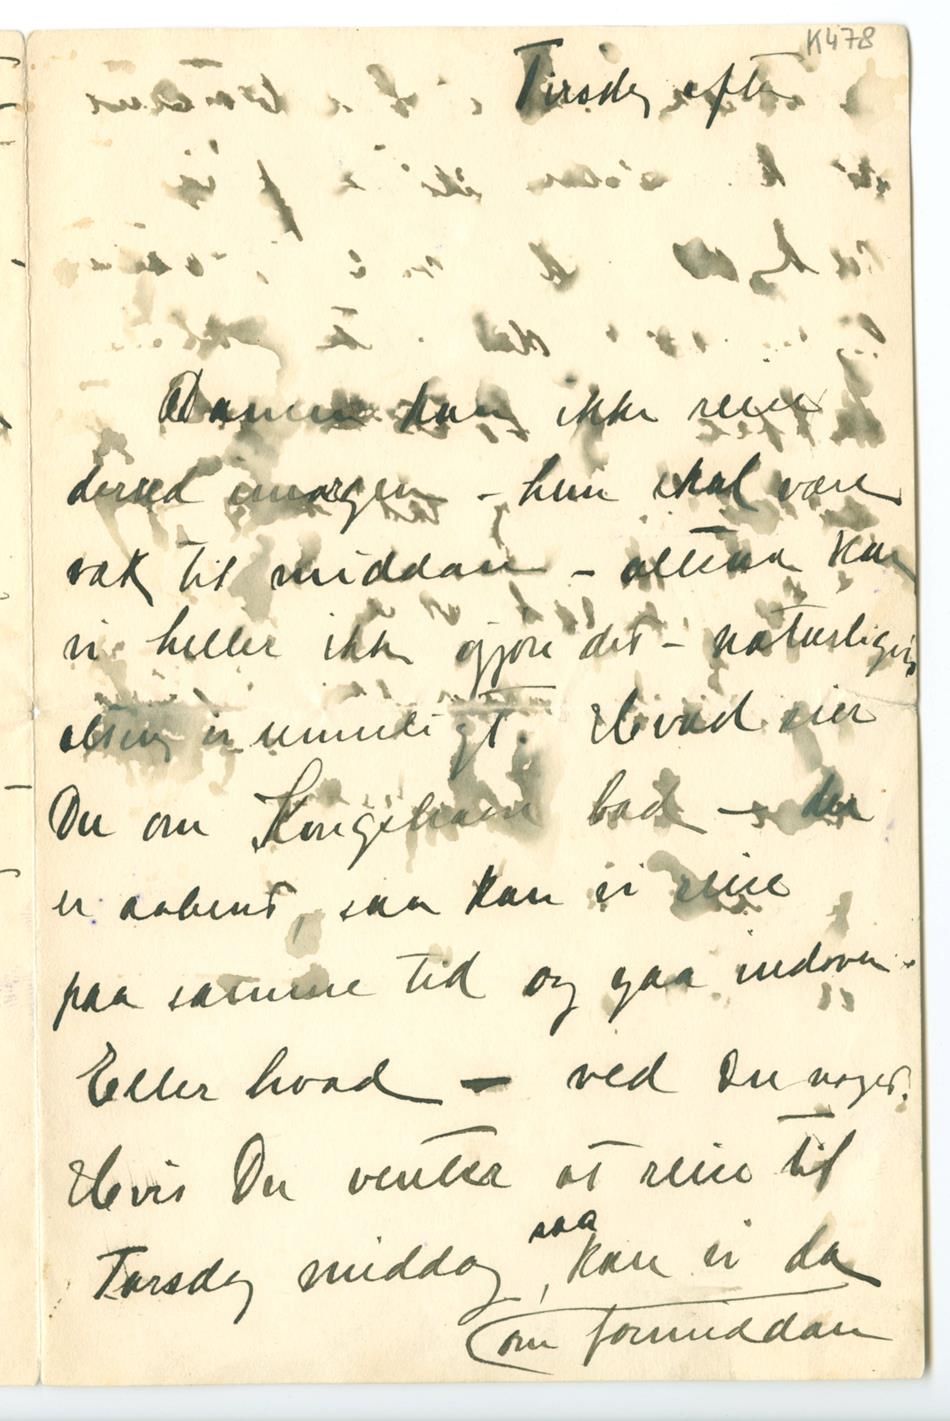 K478
Tirsdag efter
Damen kan ikke reise
dersed imorgen – hun skal være
væk til middan – altsaa kan
vi heller ikke gjøre det – naturligvis
alting er umuligt. Hvad sier
Du om Kongshavn bad – der
er aabent, saa kan vi reise
paa samme tid og gaa indover.
Eller hvad – ved Du noget.
Hvis Du venter at reise til
Torsdag middag, saa kan vi da
om formiddan